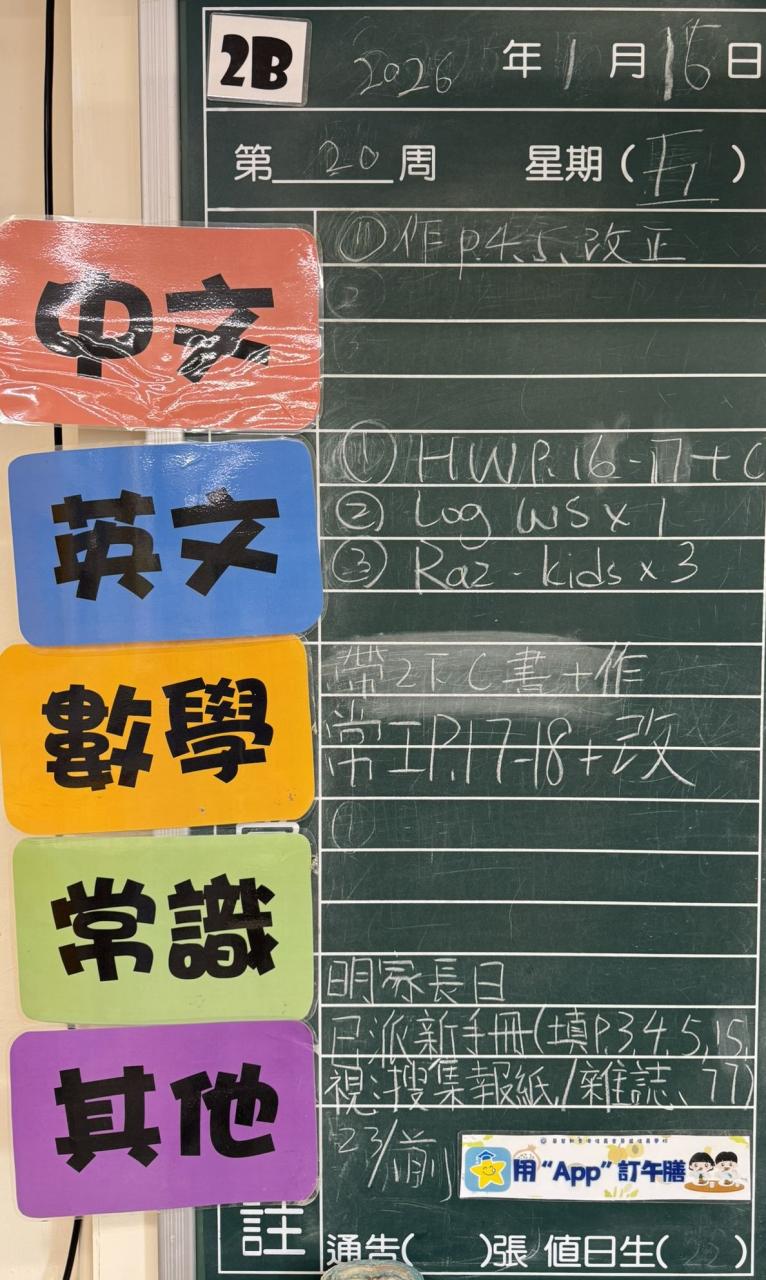 2B 2026 年 1 月 16 日
第 20 周 星期 ( 五 )
中文
① 作 p.4、5、改正
②
③
英文
① HW P.16-17 + C
② Log WS x 1
③ Raz-kids x 3
數學
帶2下C書+作
常工P.17-18+改
常識
①
其他
明家長日
已派新手冊(填P.3,4,5,15,
視:搜集報紙/雜誌、77)
23/前
用 "App" 訂午膳
註
通告( )張 值日生( 22 )